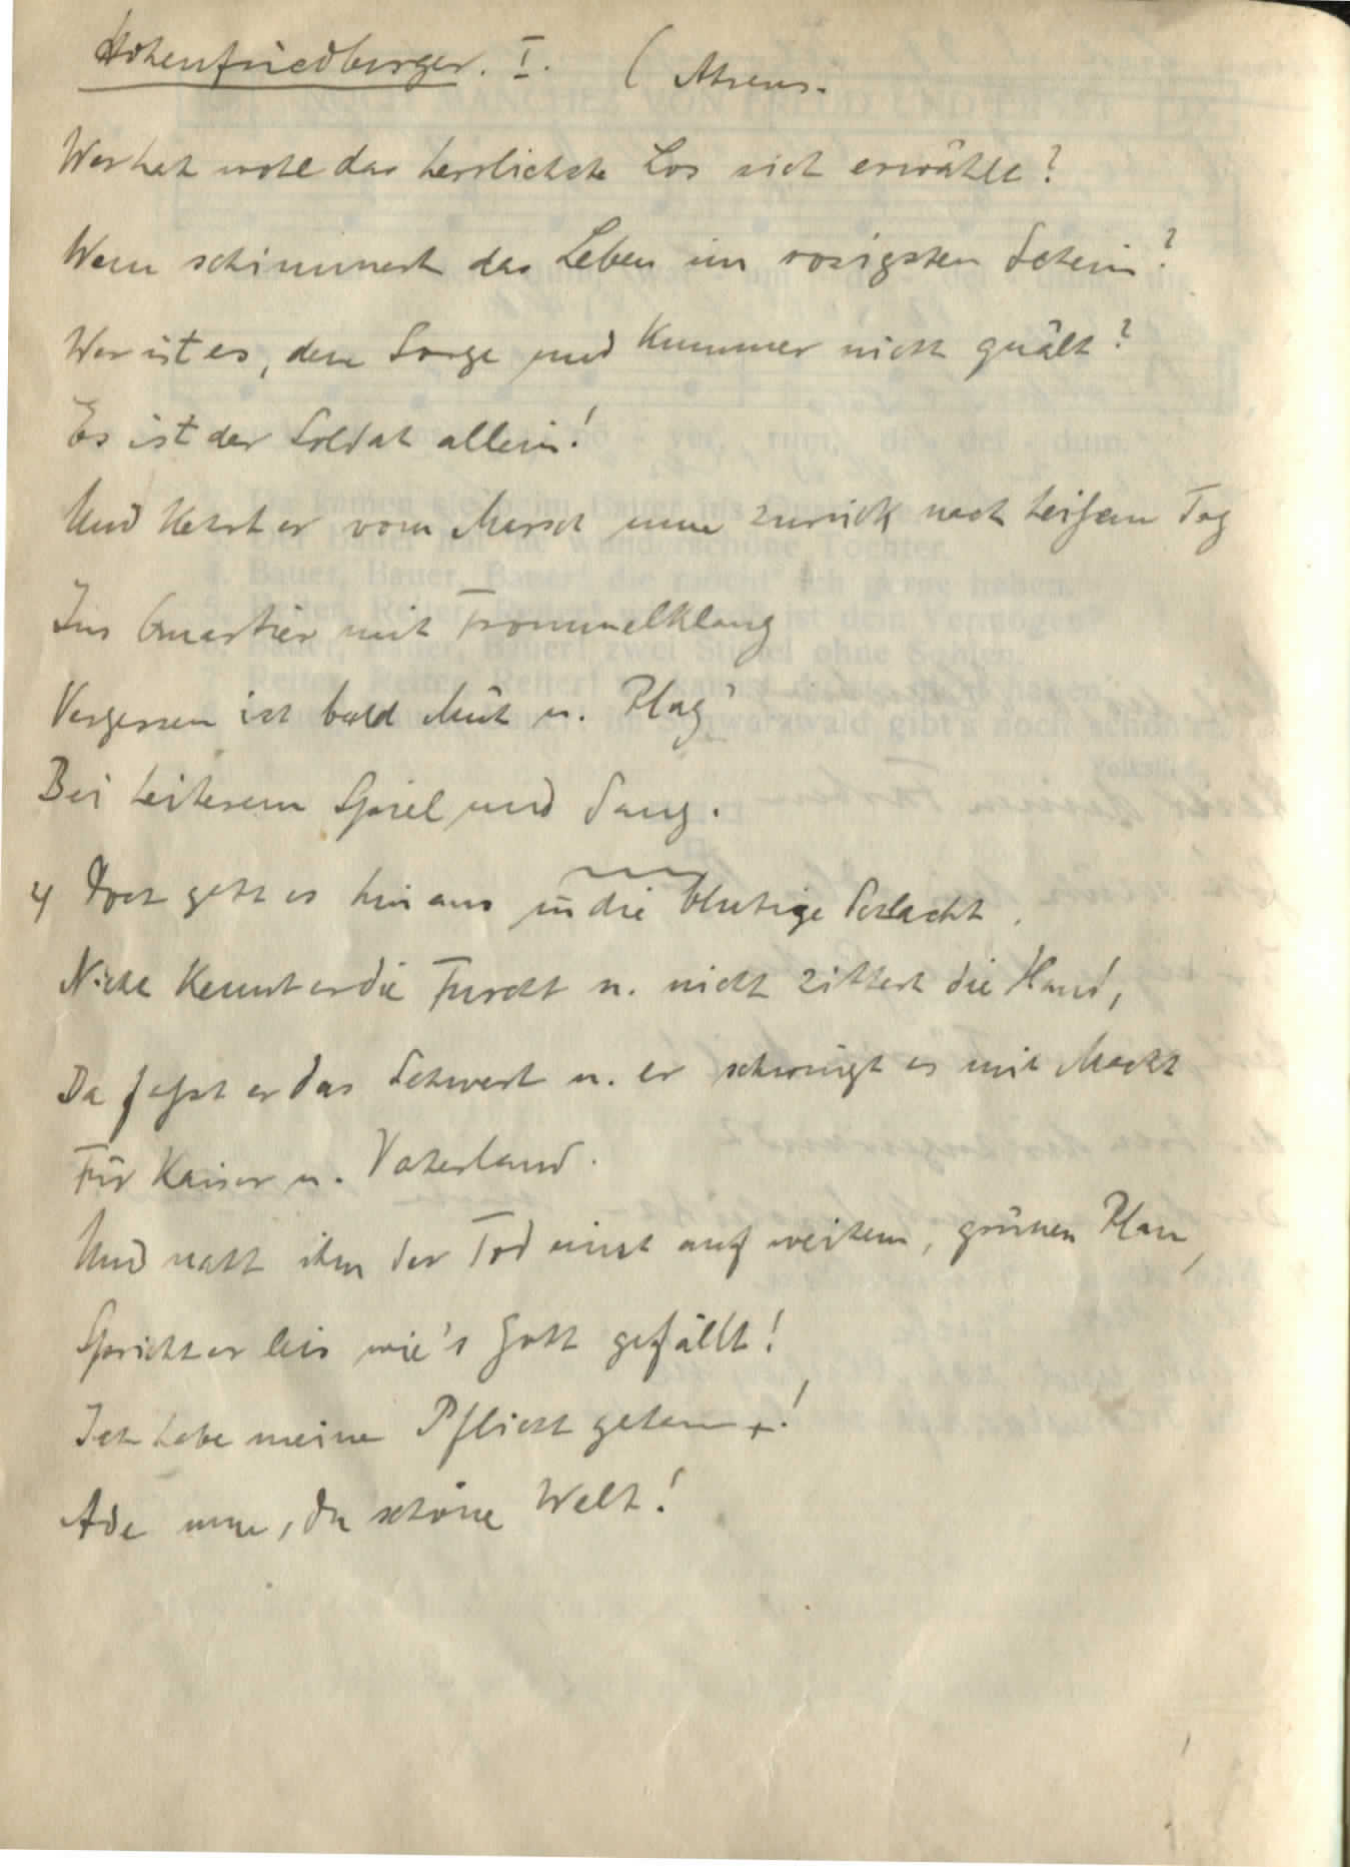 Hohenfriedberger. I. ( Ahrens.
Wer hat wohl das herrlichste Los sich erwählt?
Wem schimmert das Leben im rosigsten Schein?
Wer ist es, dem Sorge und Kummer nicht quält?
Es ist der Soldat allein!
Und kehrt er vom Marsch nun zurück nach heißem Tag
Ins Quartier mit Trommelklang
Vergessen ist bald Müh u. Plag'
Bei heiterem Spiel und Sang.
Doch geht es hinaus in die blutige Schlacht.
Nicht kennt er die Furcht u. nicht zittert die Hand,
Da faßt er das Schwert u. er schwingt es mit Macht
Für Kaiser u. Vaterland.
Und naht ihm der Tod einst auf weitem, grünen Plan,
Spricht er leis wie's Gott gefällt!
Ich habe meine Pflicht getan!
Ade nun, du schöne Welt!